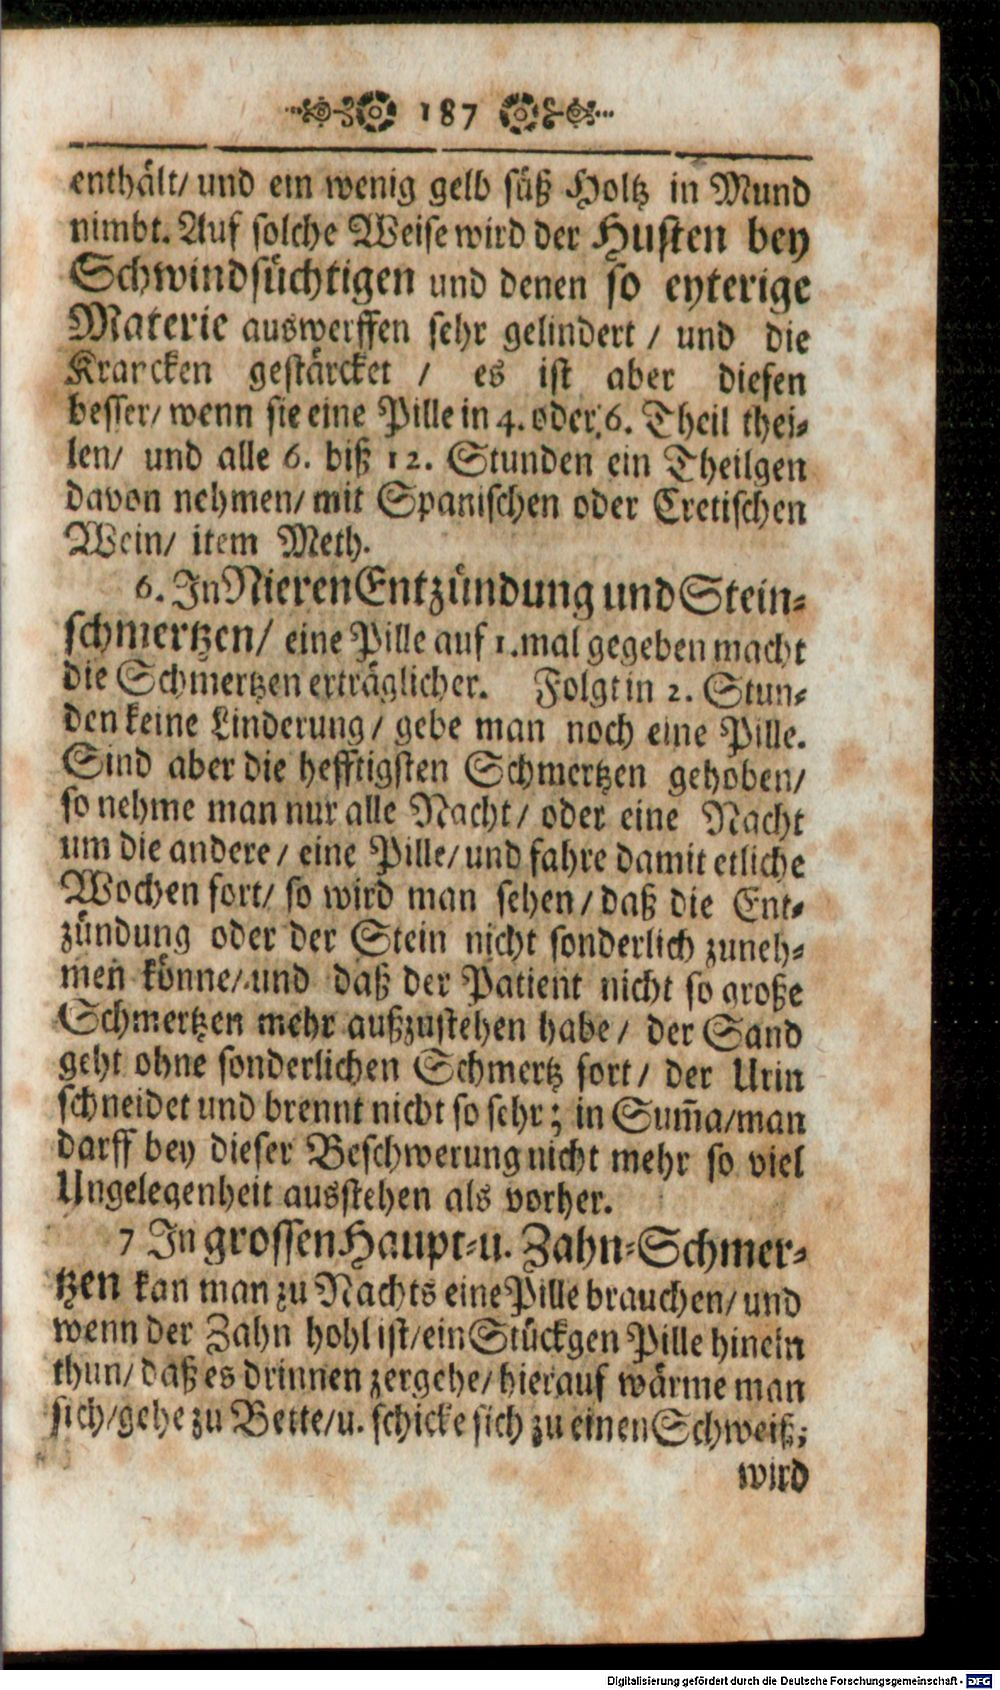 187
enthält/ und ein wenig gelb süß Holtz in Mund
nimbt. Auf solche Weise wird der Husten bey
Schwindsüchtigen und denen so eyterige
Materie auswerffen sehr gelindert / und die
Krancken gestärcket / es ist aber diesen
besser/ wenn sie eine Pille in 4. oder 6. Theil thei-
len/ und alle 6. biß 12. Stunden ein Theilgen
davon nehmen/ mit Spanischen oder Cretischen
Wein/ item Meth.
6. In Nieren Entzündung und Stein-
schmertzen/ eine Pille auf 1. mal gegeben macht
die Schmertzen erträglicher. Folgt in 2. Stun-
den keine Linderung/ gebe man noch eine Pille.
Sind aber die hefftigsten Schmertzen gehoben/
so nehme man nur alle Nacht/ oder eine Nacht
um die andere/ eine Pille/ und fahre damit etliche
Wochen fort/ so wird man sehen/ daß die Ent-
zündung oder der Stein nicht sonderlich zuneh-
men könne/ und daß der Patient nicht so große
Schmertzen mehr außzustehen habe/ der Sand
geht ohne sonderlichen Schmertz fort/ der Urin
schneidet und brennt nicht so sehr; in Sum̄a/ man
darff bey dieser Beschwerung nicht mehr so viel
Ungelegenheit ausstehen als vorher.
7 In grossen Haupt- u. Zahn-Schmer-
tzen kan man zu Nachts eine Pille brauchen/ und
wenn der Zahn hohl ist/ ein Stückgen Pille hinein
thun/ daß es drinnen zergehe/ hierauf wärme man
sich/ gehe zu Bette/ u. schicke sich zu einen Schweiß;
wird
Digitalisierung gefördert durch die Deutsche Forschungsgemeinschaft - DFG